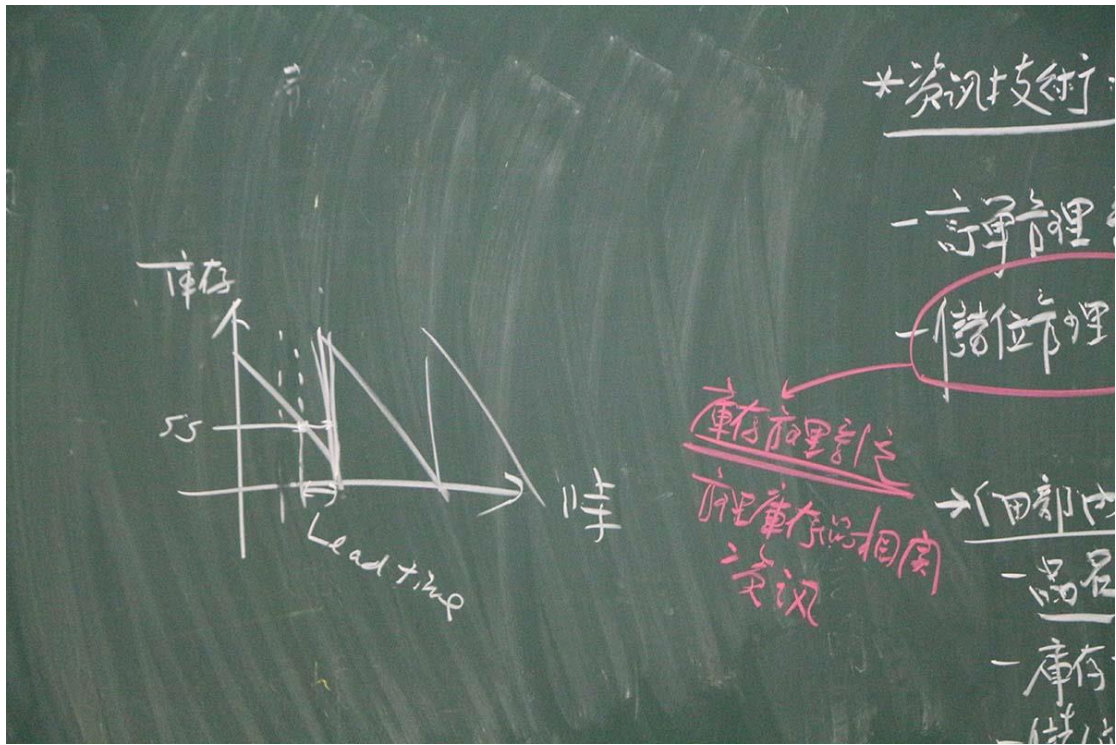 庫存
SS
時
Lead time
*資訊技術:
-訂單管理
-儲位管理
庫存管理系統
管理庫存的相関
資訊
→個部
-品名
-庫存
-儲位